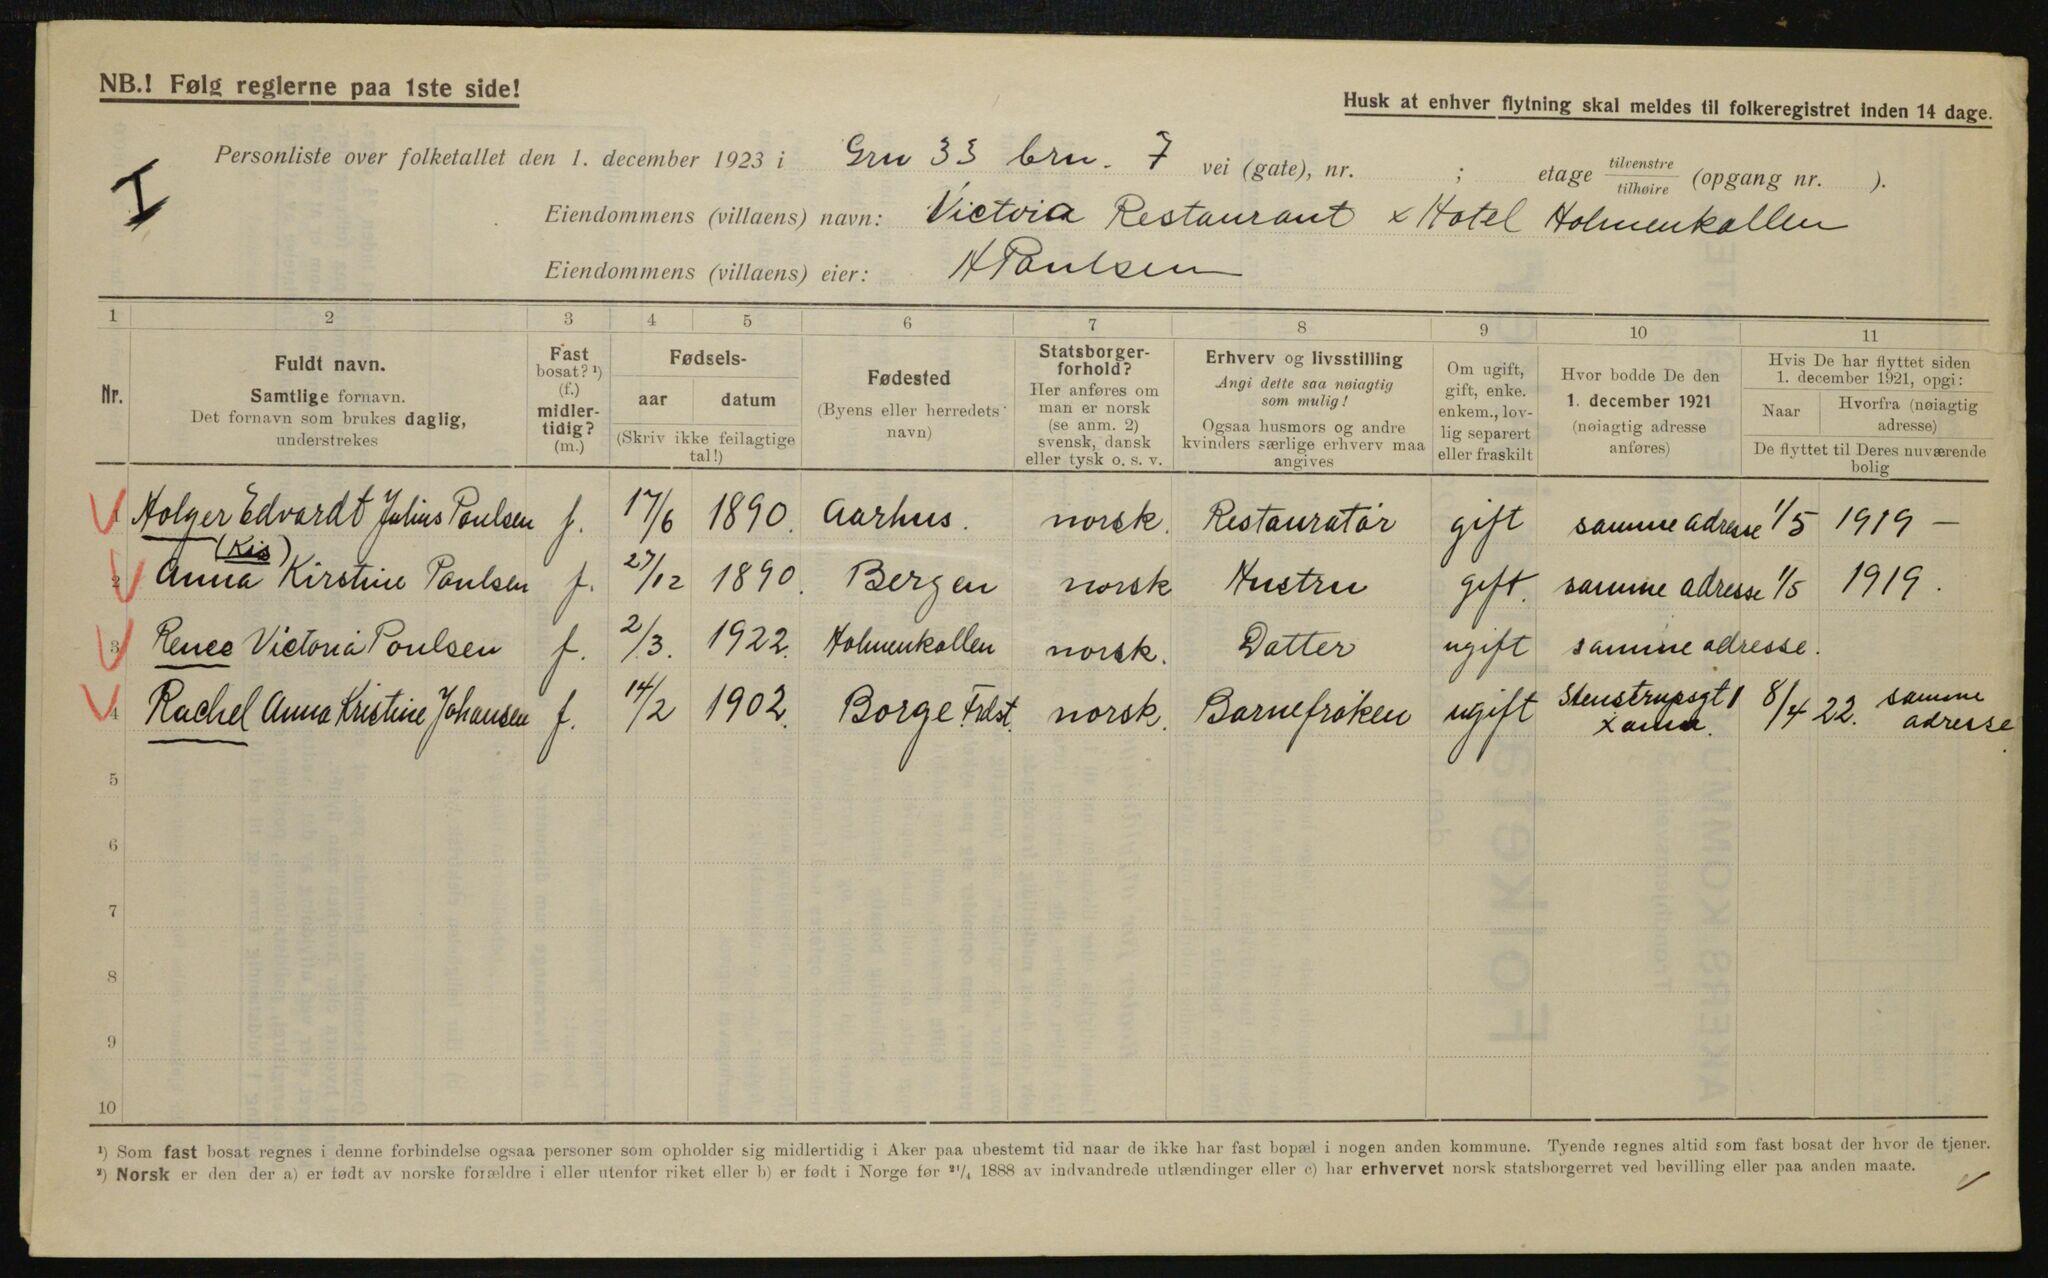 NB.! Følg reglerne paa 1ste side!
Husk at enhver flytning skal meldes til folkeregistret inden 14 dage.
I
Personliste over folketallet den 1. december 1923 i Grn 33 brn. 7 vei (gate), nr. ; etage tilvenstre tilhøire (opgang nr. ).
Eiendommens (villaens) navn: Victoria Restaurant x Hotel Holmenkollen
Eiendommens (villaens) eier: H Poulsen
1 2 3 4 5 6 7 8 9 10 11
Nr.
Fuldt navn.
Samtlige fornavn.
Det fornavn som brukes daglig,
understrekes
Fast
bosat? ¹)
(f.)
midler-
tidig?
(m.)
Fødsels-
aar datum
(Skriv ikke feilagtige
tal!)
Fødested
(Byens eller herredets
navn)
Statsborger-
forhold?
Her anføres om
man er norsk
(se anm. 2)
svensk, dansk
eller tysk o. s. v.
Erhverv og livsstilling
Angi dette saa nøiagtig
som mulig!
Ogsaa husmors og andre
kvinders særlige erhverv maa
angives
Om ugift,
gift, enke.
enkem., lov-
lig separert
eller fraskilt
Hvor bodde De den
1. december 1921
(nøiagtig adresse
anføres)
Hvis De har flyttet siden
1. december 1921, opgi:
Naar
Hvorfra (nøiagtig
adresse)
De flyttet til Deres nuværende
bolig
1 Holger Edvardt Julius Poulsen f. 17/6 1890. Aarhus. norsk. Restauratør gift samme adresse 1/5 1919 —
(Kis)
2 Anna Kirstine Poulsen f. 27/12 1890. Bergen norsk Hustru gift. samme adresse 1/5 1919.
3 Renee Victoria Poulsen f. 2/3. 1922. Holmenkollen norsk. Datter ugift samme adresse.
4 Rachel Anna Kristine Johansen f. 14/2 1902. Borge Frdst. norsk. Barnefrøken ugift Stenstrupsgt 1 8/4 22. samme
adresse
5
6
7
8
9
10
¹) Som fast bosat regnes i denne forbindelse ogsaa personer som opholder sig midlertidig i Aker paa ubestemt tid naar de ikke har fast bopæl i nogen anden kommune. Tyende regnes altid som fast bosat der hvor de tjener.
²) Norsk er den der a) er født av norske forældre i eller utenfor riket eller b) er født i Norge før ²¹/₄ 1888 av indvandrede utlændinger eller c) har erhvervet norsk statsborgerret ved bevilling eller paa anden maate.